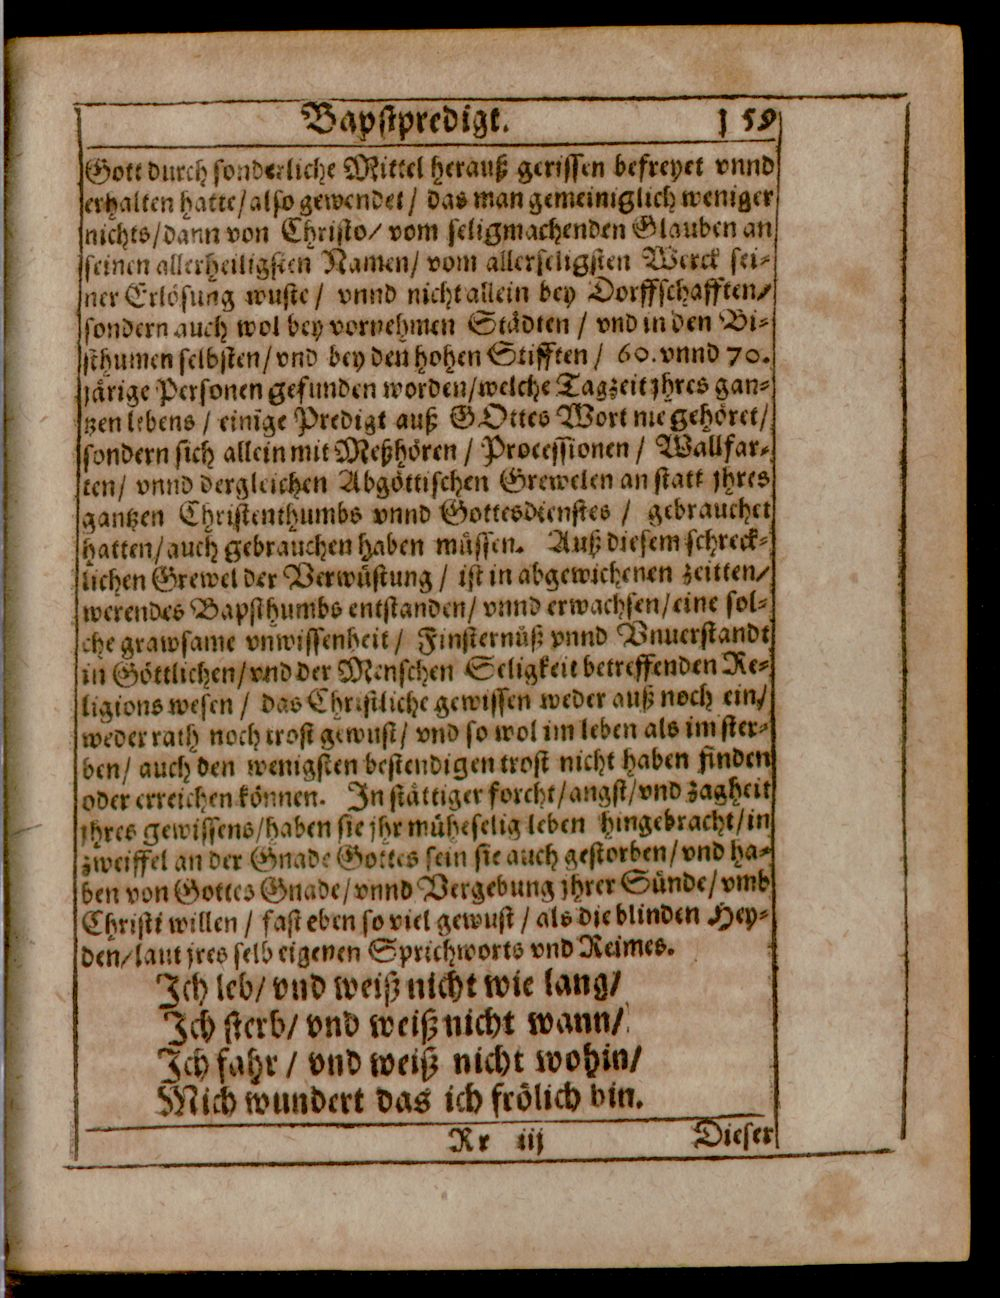 Bapstpredigt. 159
Gott durch sonderliche Mittel herauß gerissen befreyet vnnd
erhalten hatte/ also gewendet/ das man gemeiniglich weniger
nichts/ dann von Christo/ vom seligmachenden Glauben an
seinen allerheiligsten Namen/ vom allerseligsten Werck sei-
ner Erlösung wuste/ vnnd nicht allein bey Dorffschafften/
sondern auch wol bey vornehmen Städten/ vnd in den Bi-
sthumen selbsten/ vnd bey den hohen Stifften/ 60. vnnd 70.
järige Personen gefunden worden/ welche Tagzeit jhres gan-
tzen lebens/ einige Predigt auß GOttes Wort nie gehöret/
sondern sich allein mit Meßhören/ Processionen/ Wallfar-
ten/ vnnd dergleichen Abgöttischen Grewelen an statt jhres
gantzen Christenthumbs vnnd Gottesdienstes/ gebrauchet
hatten/ auch gebrauchen haben müssen. Auß diesem schreck-
lichen Grewel der Verwüstung/ ist in abgewichenen zeitten/
werendes Bapsthumbs entstanden/ vnnd erwachsen/ eine sol-
che grawsame vnwissenheit/ Finsternüß vnnd Vnuerstandt
in Göttlichen/ vnd der Menschen Seligkeit betreffenden Re-
ligions wesen/ das Christliche gewissen weder auß noch ein/
weder rath noch trost gewust/ vnd so wol im leben als im ster-
ben/ auch den wenigsten bestendigen trost nicht haben finden
oder erreichen können. In stättiger forcht/ angst/ vnd zagheit
jhres gewissens/ haben sie jhr müheselig leben hingebracht/ in
zweiffel an der Gnade Gottes sein sie auch gestorben/ vnd ha-
ben von Gottes Gnade/ vnnd Vergebung jhrer Sünde/ vmb
Christi willen/ fast eben so viel gewust/ als die blinden Hey-
den/ laut jres selb eigenen Sprichworts vnd Reimes.
Ich leb/ vnd weiß nicht wie lang/
Ich sterb/ vnd weiß nicht wann/
Ich fahr/ vnd weiß nicht wohin/
Mich wundert das ich frölich bin.
Rr iij Dieser